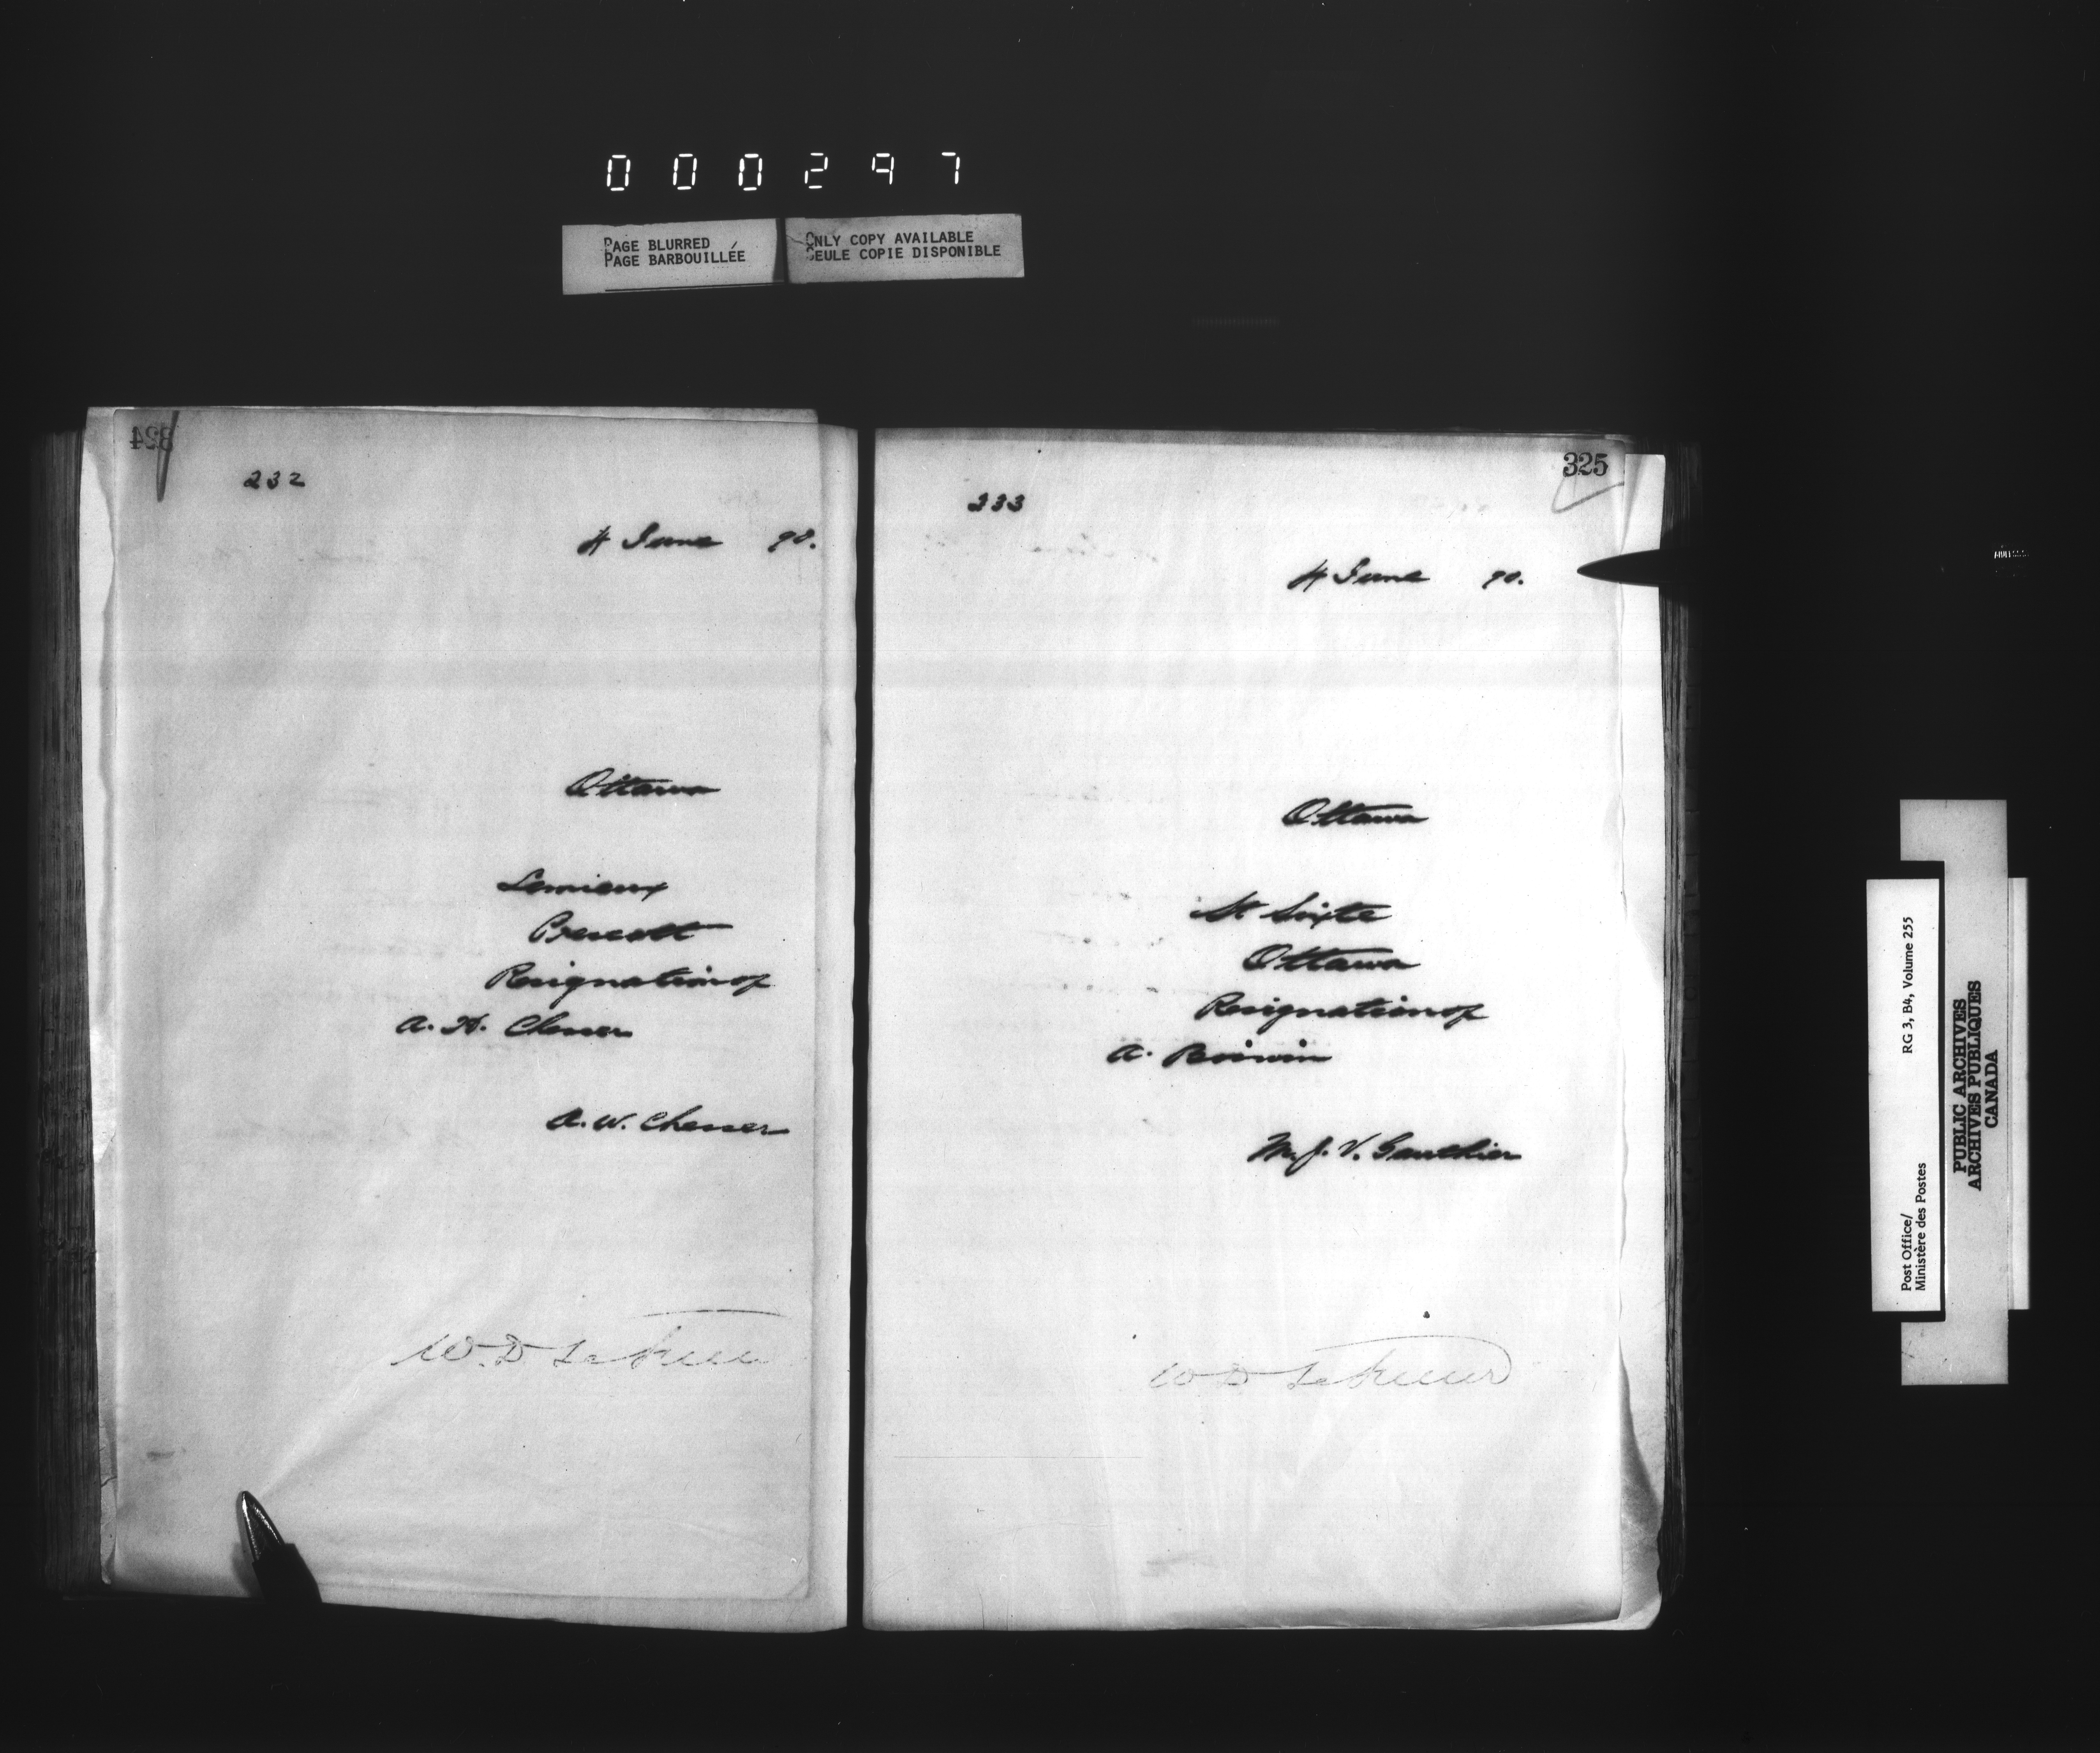 000297
PAGE BLURRED
PAGE BARBOUILLÉE
ONLY COPY AVAILABLE
SEULE COPIE DISPONIBLE
324
232
4 June 90.
Ottawa
Lemieux
Prescott
Resignation of
A. H. Chesser
A. W. Chesser
W. D. LeSueur
325
233
4 June 90.
Ottawa
St Sixte
Ottawa
Resignation of
A. Boisvin
M. J. V. Gauthier
W D LeSueur
Post Office/
Ministère des Postes
RG 3, B4, Volume 255
PUBLIC ARCHIVES
ARCHIVES PUBLIQUES
CANADA